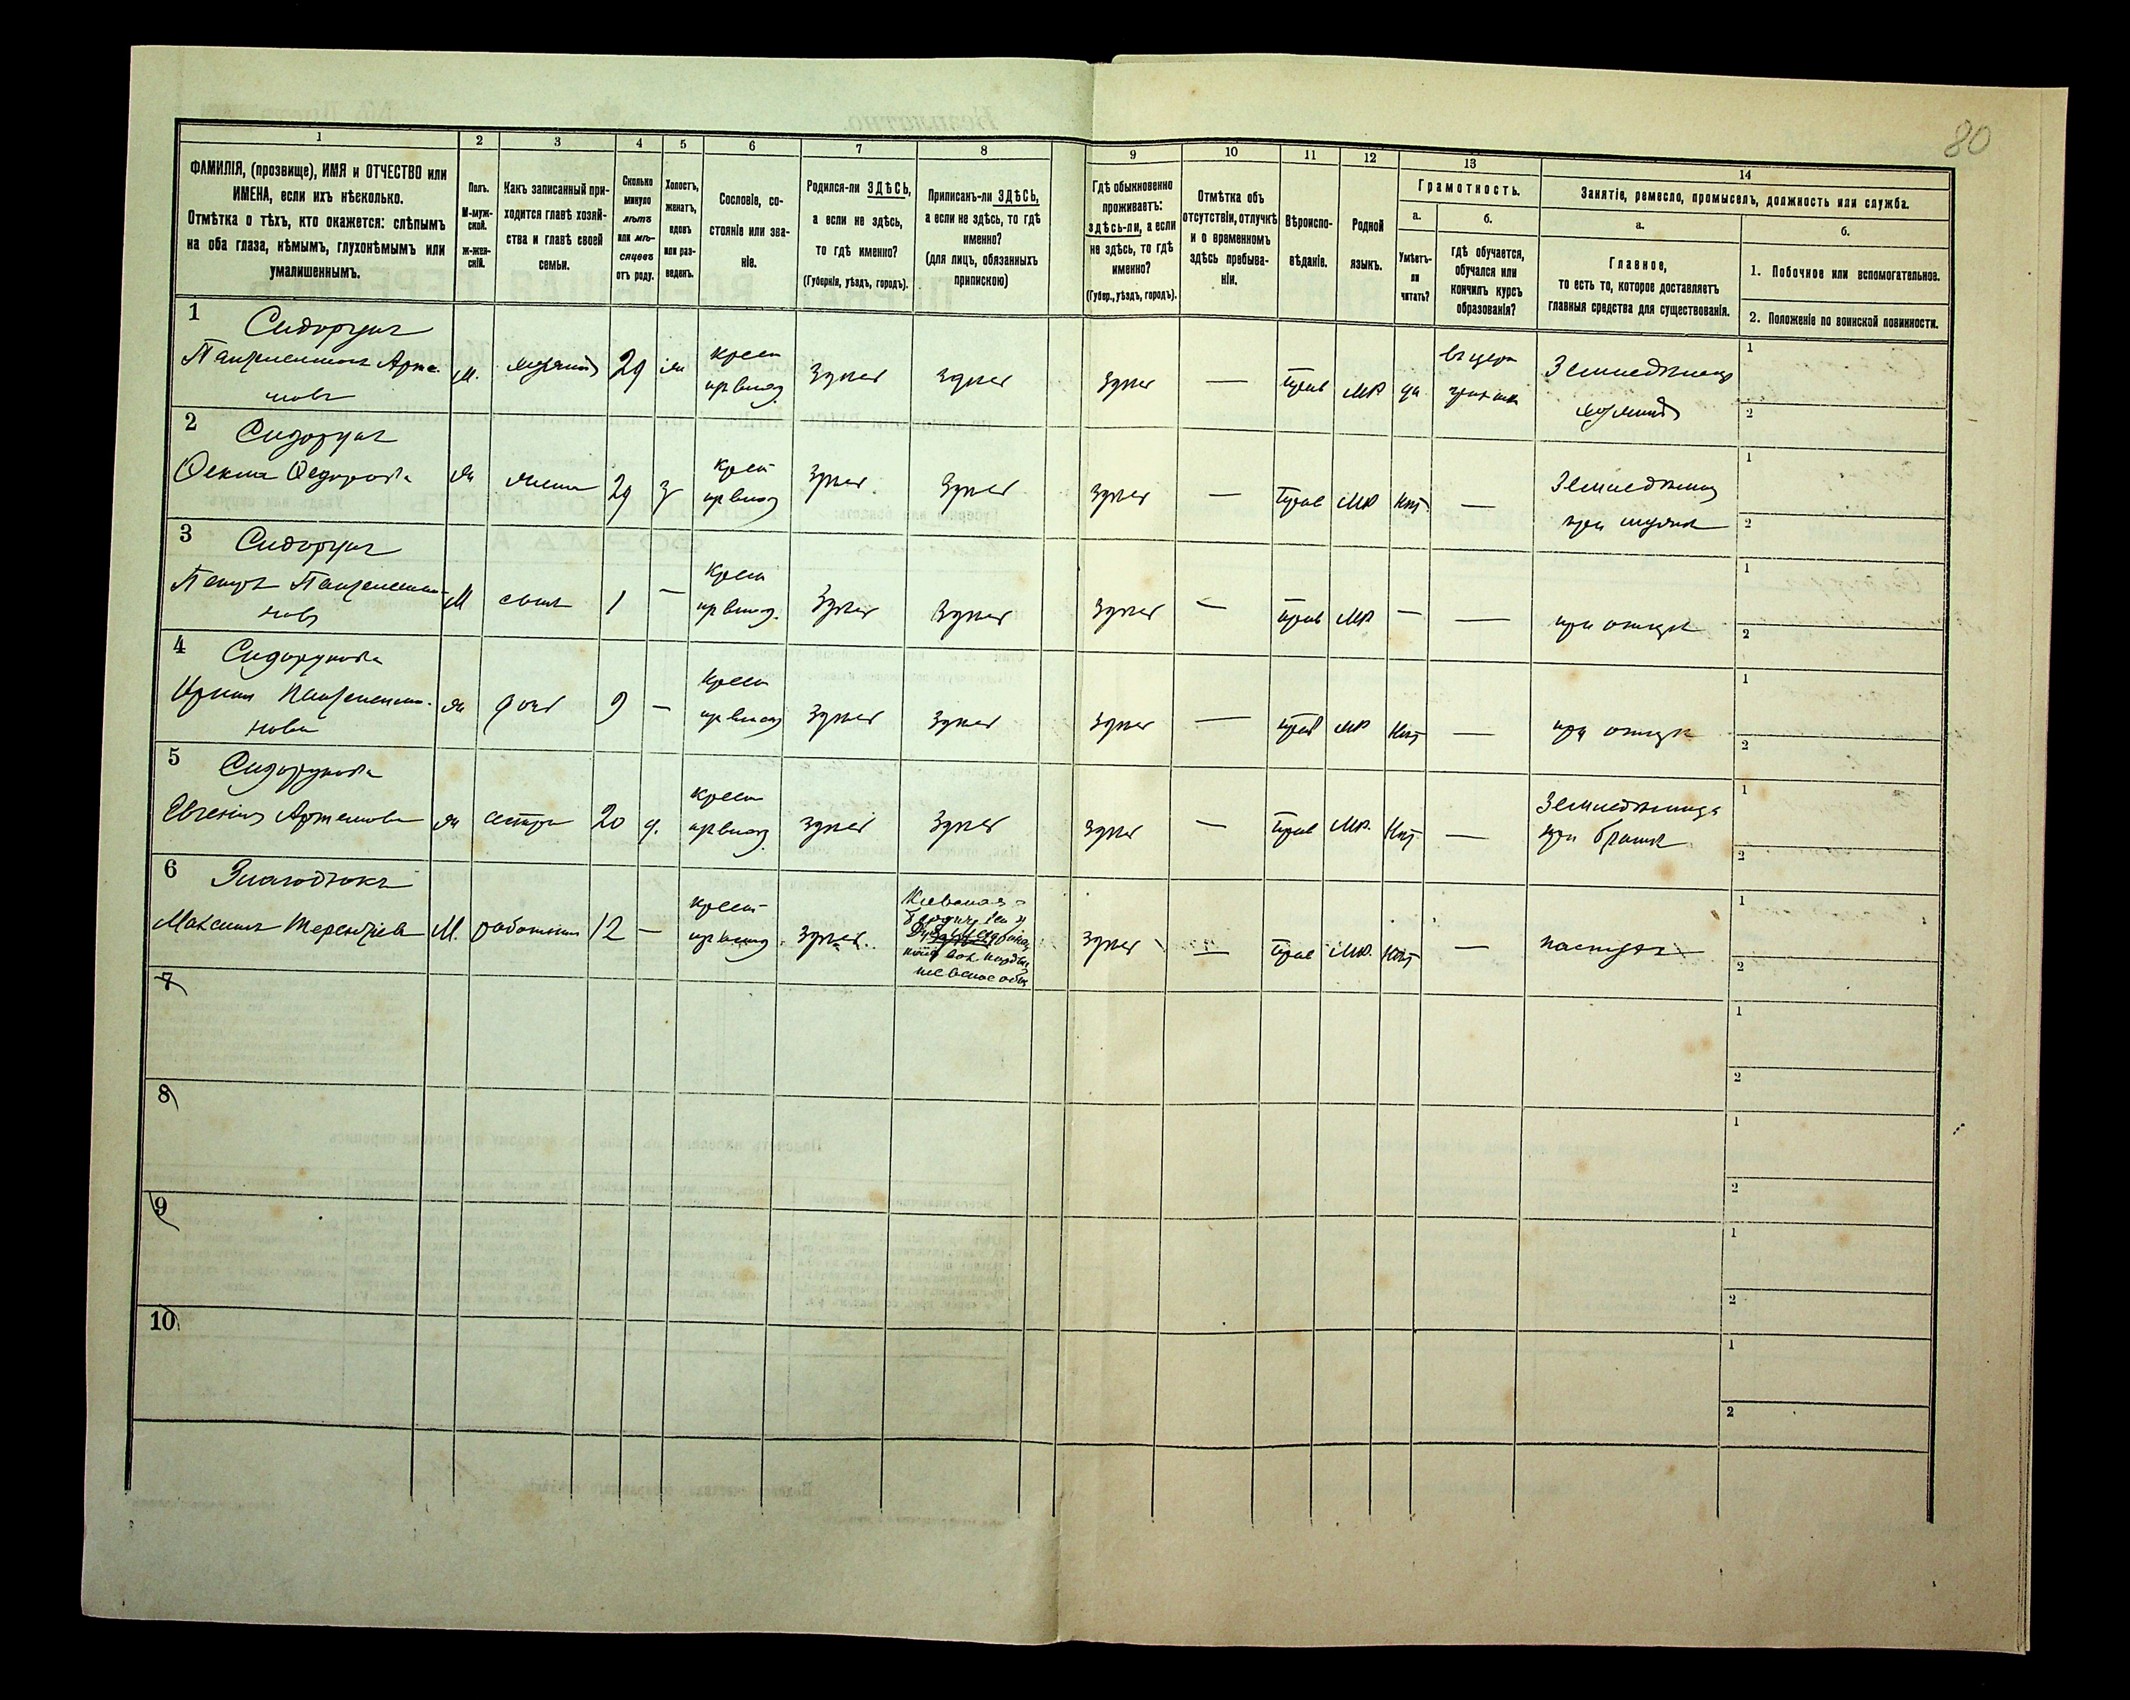 80
1 2 3 4 5 6 7 8 9 10 11 12 13 14
ФАМИЛІЯ, (прозвище), ИМЯ и ОТЧЕСТВО или
ИМЕНА, если ихъ нѣсколько.
Отмѣтка о тѣхъ, кто окажется: слѣпымъ
на оба глаза, нѣмымъ, глухонѣмымъ или
умалишеннымъ.
Полъ.
М-муж-
ской.
ж-жен-
скій.
Какъ записанный при-
ходится главѣ хозяй-
ства и главѣ своей
семьи.
Сколько
минуло
лѣтъ
или мѣ-
сяцевъ
отъ роду.
Холостъ,
женатъ,
вдовъ
или раз-
веденъ.
Сословіе, со-
стояніе или зва-
ніе.
Родился-ли ЗДѢСЬ,
а если не здѣсь,
то гдѣ именно?
(Губернія, уѣздъ, городъ).
Приписанъ-ли ЗДѢСЬ,
а если не здѣсь, то гдѣ
именно?
(для лицъ, обязанныхъ
припискою)
Гдѣ обыкновенно
проживаетъ:
здѣсь-ли, а если
не здѣсь, то гдѣ
именно?
(Губер., уѣздъ, городъ).
Отмѣтка объ
отсутствіи, отлучкѣ
и о временномъ
здѣсь пребыва-
ніи.
Вѣроиспо-
вѣданіе.
Родной
языкъ.
Грамотность.
а.
Умѣетъ-
ли
читать?
б.
гдѣ обучается,
обучался или
кончилъ курсъ
образованія?
Занятіе, ремесло, промыселъ, должность или служба.
а.
Главное,
то есть то, которое доставляетъ
главныя средства для существованія.
б.
1. Побочное или вспомогательное.
2. Положеніе по воинской повинности.
1 Сидорукъ
М. 29 крест здѣсь здѣсь здѣсь — прав МР да
1
2
2 Сидорукъ
Ѳекла Ѳедорова ж жена 29 з крест здѣсь здѣсь здѣсь — прав МР нѣт — Земледѣлица
при мужѣ
1
2
3 Сидорукъ
М сынъ 1 — крест здѣсь здѣсь здѣсь — прав МР — — при отцѣ
1
2
4 Сидорукова
ж дочь 9 — крест здѣсь здѣсь здѣсь — прав МР нѣт — при отцѣ
1
2
5 Сидорукова
Евгенія Артемова ж сестра 20 д. крест здѣсь здѣсь здѣсь — прав МР. нѣт — Земледѣлица
при братѣ
1
2
6
Максимъ Терентіевъ М. работникъ 12 — крест здѣсь. Кіевская
здѣсь — прав МР. нѣт — пастухъ
1
2
7
1
2
8
1
2
9
1
2
10
1
2